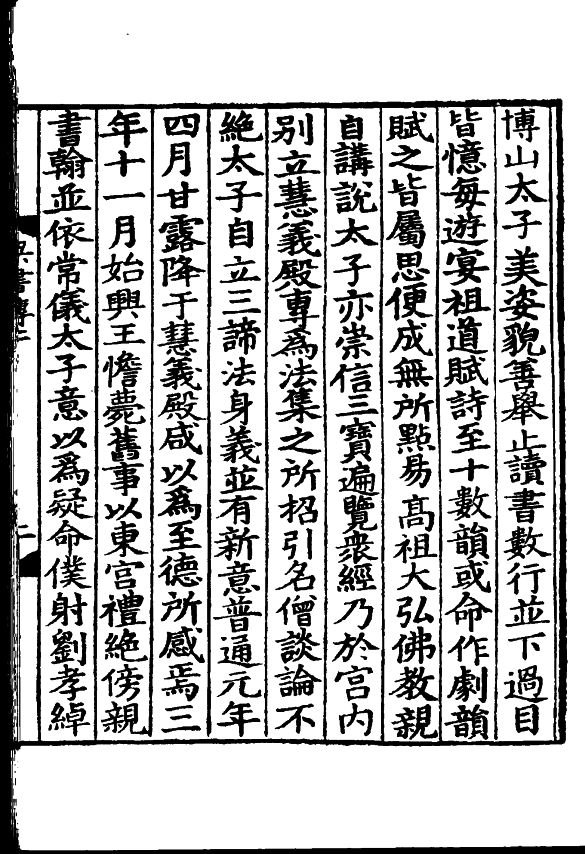 博山太子美姿貌善舉止讀書數行並下過目
皆憶每遊宴祖道賦詩至十數韻或命作劇韻
賦之皆屬思便成無所點易高祖大弘佛教親
自講說太子亦崇信三寶遍覽衆經乃於宮内
别立慧義殿專為法集之所招引名僧談論不
絶太子自立三諦法身義並有新意普通元年
四月甘露降于慧義殿咸以為至德所感焉三
年十一月始興王憺薨舊事以東宮禮絶傍親
書翰並依常儀太子意以爲疑命僕射劉孝綽
二